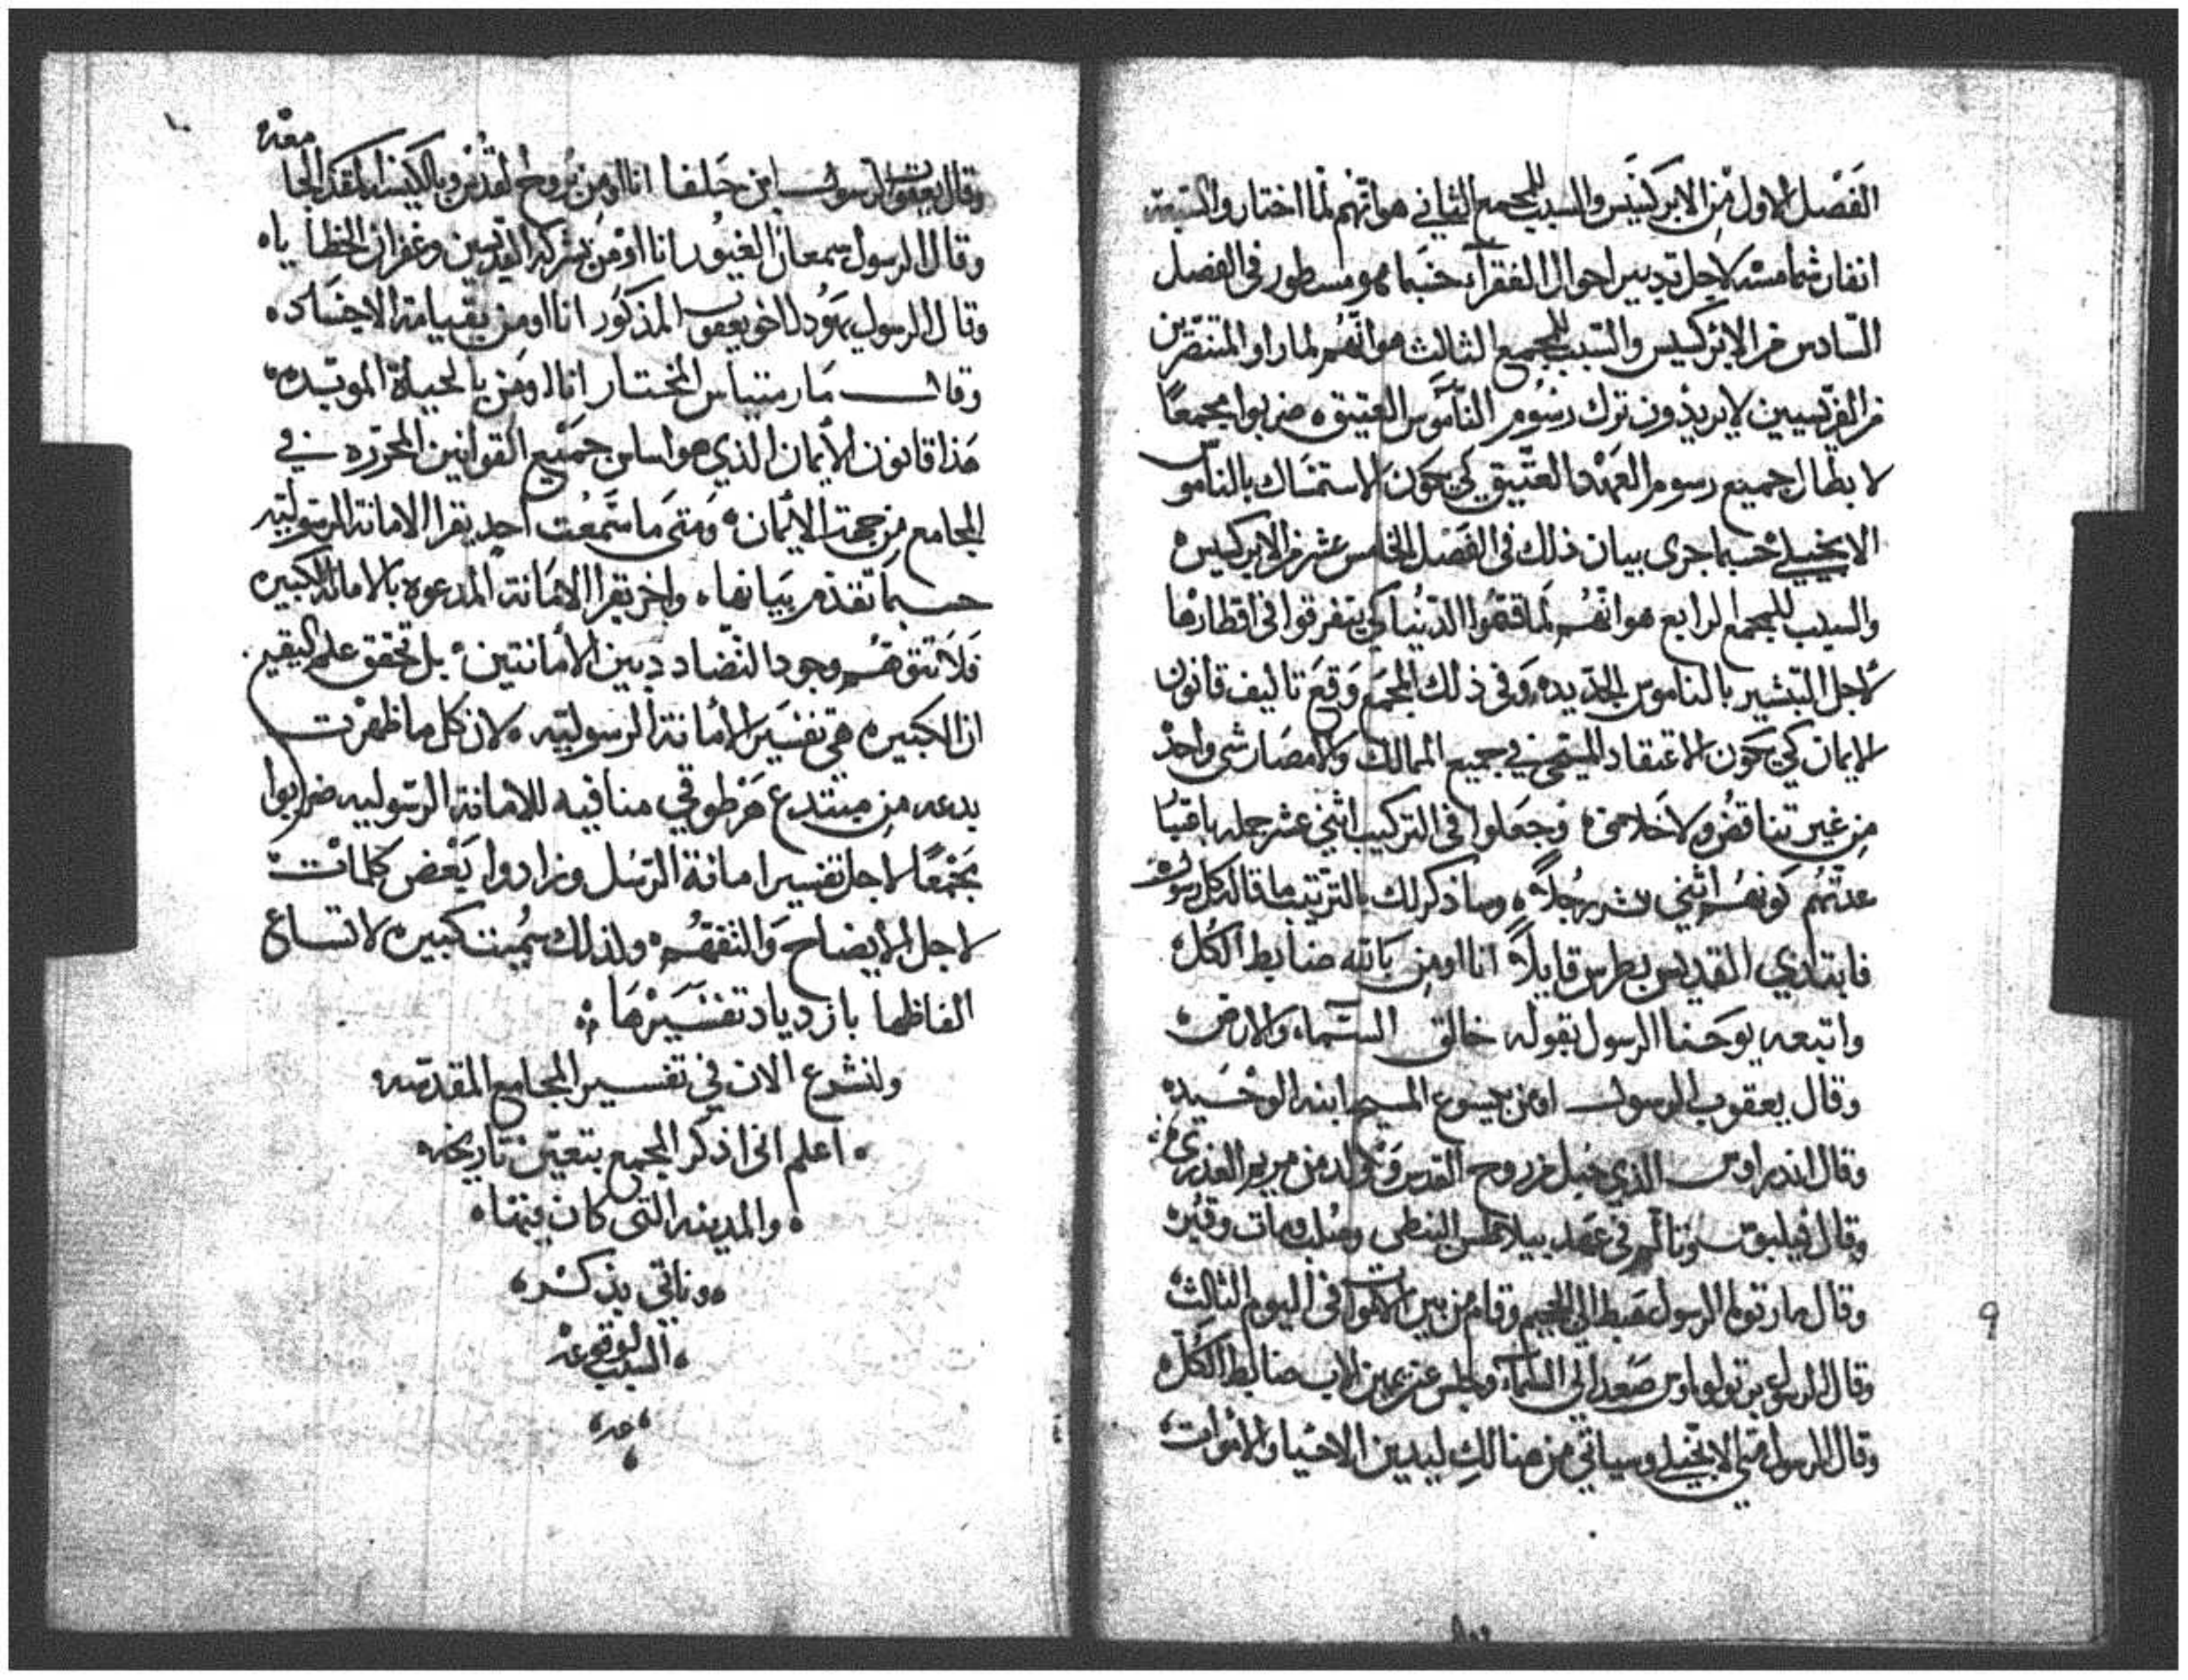 الفَصْل الاول مِن الابركسِيس والسبب للمجمع الثاني هو انّهم لما اختاروا السبعة
انفار شمامسه لاجل تدبير احوال الفقرآء حسَبما هو مسطور في الفصل
السّادس من الابركسيس والسّبب للمجمع الثالث هو انّهُم لما راوا المتنصّرين
من الفرّيسيين لا يريدُون ترك رسُوم النامُوس العتيق ه ضربوا مجمعاً
لابطال جميع رسوم العَهْد العتّيق كي يكون الاستمسَاك بالناموس
الانجيلي حسبما جرى بيان ذلك في الفَصْل الخامس عشر من الابركسيس ه
والسبب للمجمع الرابع هو انّهُم لما قسَمُوا الدّنيا كي يتفرقوا في اقطارها
لاجل التبشير بالناموس الجّديده وَفي ذلك المجمَع وَقعَ تاليف قانون
الايمان كي يكون الاعتقاد المسيحي في جميع الممالك والامصَار شي واحدْ
مِن غير تناقضُ ولا اختلاف ه وَجعَلوا في التركيب اثني عشر جمله باقتبا
عدّتهُم كونهُم اثني عشر رجُلاً ه وساذكر لك بالترتيب ما قاله كل رسول ه
فابتدي القديس بطرس قايلاً انا اومِن بالله ضابط الكُل ه
واتبعه يوحَنا الرسول بقوله خالق السّماء والارض ه
وقال يعقوب الرسول اومن بيسوع المسيح ابنه الوحَيد ه
وقال اندراوس الذي حُبل به من روح القدس وَوُلد من مريم العذري ه
وقال فيلبوس وتالم في عَهد بيلاطس البنطي وصُلب ومات وقُبره
وقال مار توما الرسول هَبط الي الجحيم وقام من بين الاموات في اليوم الثالث ه
وقال الرسول برتولوماوس صَعد الي السّماء وجلس عن يمين الاب ضابط الكُل ه
وقال الرسول متي الانجيلي وسياتي من هنالك ليدين الاحيا والاموات ه
٩
١٠
وقال يعقوب الرسول ابن حَلفا انا اومِن بروح القدس وبالكنيسه المقدسه الجامعه
وقال الرسول سمعان الغيُور انا اوْمن بشركة القديسين وغفران الخطايا ه
وقال الرسول يهُودا اخو يعقوب المذكور انا اومن بقيامة الاجسَاد ه
وقال مَار متياس المختار انا اومَن بالحياة الموبّده ه
هَذا قانون الأيمان الذي هو اساس جمَيع القوانين المحرّره في
المجامع من جهة الأيمان ه وَمتىَ ما سَمعْت احد يقرا الامانة الرسُوليّه
حسبما تقدّم بيَانها ه واخر يقرا الامَانة المدعوه بالامانه الكبيره
فَلا تتوهّم وجود التّضادد بين الأمانتين ه بل تحقق علم اليقين
ان الكبيره هي تفسَير الأمانة الرسوليّه ه لان كل ما ظهرْت
بدعه مِن مبتدع هَرْطوقي منافيه للامانة الرسوليه ضربوا
مَجْمعًا لاجل تفسير امانة الرُسُل وزادوا بَعْض كلمات ه
لاجل الأيضاح وَالتفهُّم ه ولذلك سُمِيت كبيره لاتساع
الفاظها بازدياد تفسَيْرهَا ؞
ولنشرع الان في تفسير المجامع المقدّسه ه
ه اعلم اني اذكر المجمع بتعيّين تاريخه ه
ه والمدينه التي كان فيها ه
ه وناتي بذكر ه
ه السبب لوقوعه